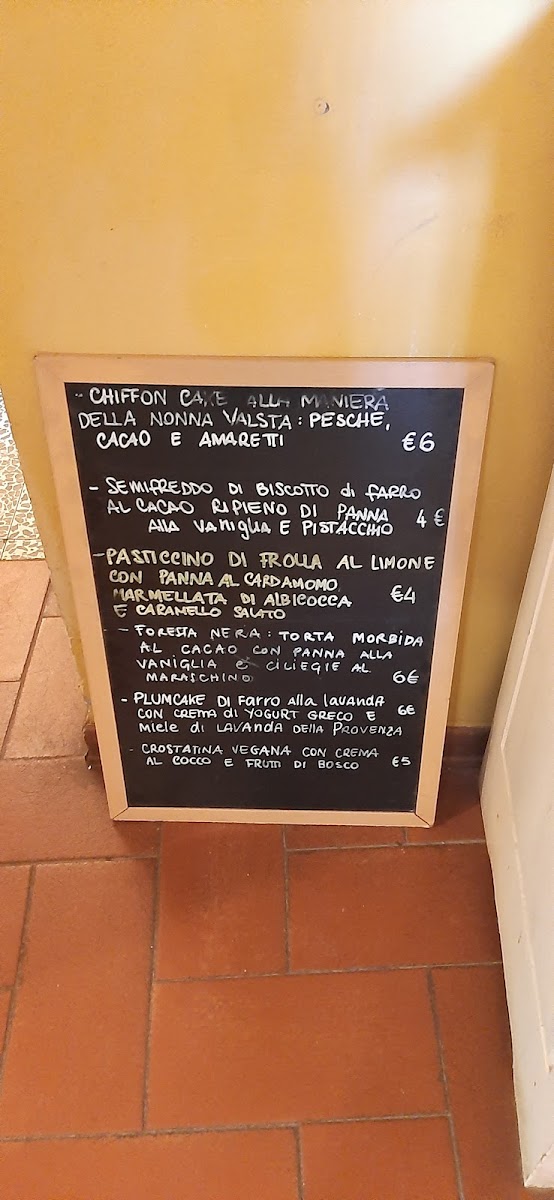 - CHIFFON CAKE ALLA MANIERA
DELLA NONNA VALSTA: PESCHE,
CACAO E AMARETTI €6
- SEMIFREDDO DI BISCOTTO di FARRO
AL CACAO RIPIENO DI PANNA
Alla VaNiglia E PISTACCHIO 4 €
- PASTICCINO DI FROLLA AL LIMONE
CON PANNA AL CARDAMOMO
MARMELLATA DI ALBICOCCA €4
E CARAMELLO SALATO
- FORESTA NERA: TORTA MORBIDA
AL CACAO CON PANNA ALLA
VANIGLIA E CILIEGIE AL
MARASCHINO 6€
- PLUMCAKE DI Farro alla lavanda
CON CREMA di YOGURT GRECO E 6€
Miele di LAVANDA DELLA PROVENZA
- CROSTATINA VEGANA CON CREMA
AL COCCO E FRUTTI DI BOSCO €5